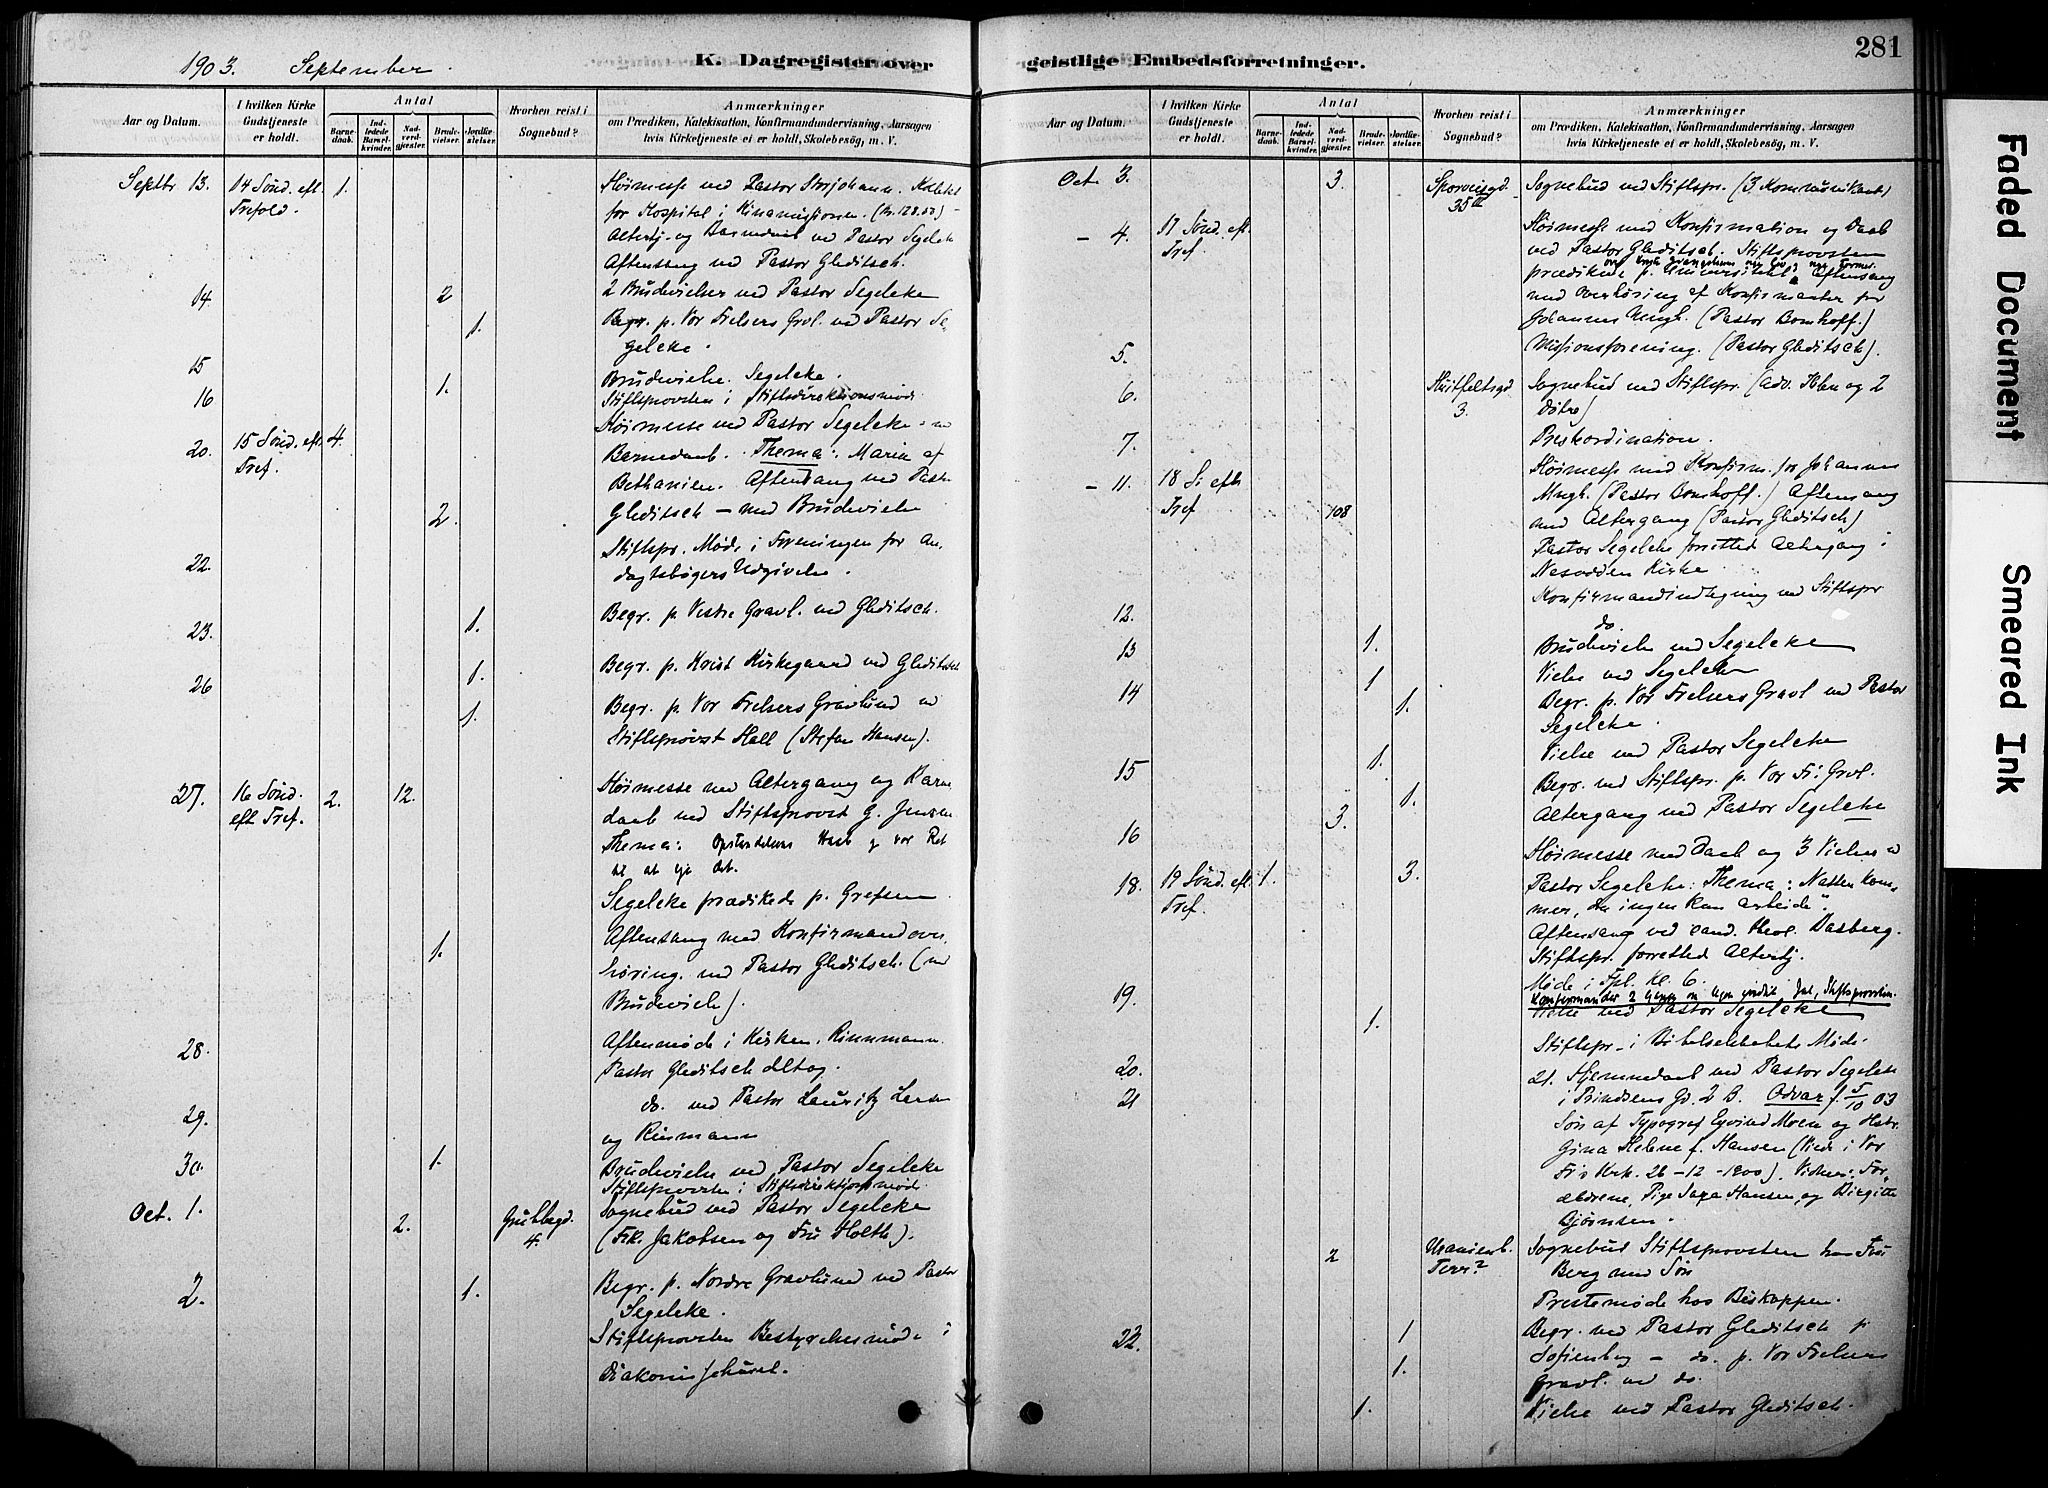 1903. September.
K. Dagregister over
Aar og Datum.
I hvilken Kirke Gudstjeneste er holdt.
Antal
Barnedaab.
Indledede Barselkvinder.
Nadverdgjæster.
Brudevielser.
Jordfæstelser.
Hvorhen reist i Sognebud?
Anmærkninger
om Prædiken, Katekisation, Konfirmandundervisning, Aarsagen
hvis Kirketjeneste ei er holdt, Skolebesøg, m. V.
Septbr 13. 14 Sønd. eft. 1. Høimesse ved Pastor Storjohann.
Trefold. for Hospital i Kinamissionen.
Altertj. og Barnedaab ved Pastor Segelcke
Aftensang ved Pastor Gleditsch.
14 2 2 Brudevielser ved Pastor Segelcke
1. Begr. p. Vor Frelsers Grvl. ved Pastor Se-
gelcke.
15 Brudevielse. Segelcke.
16 1. Stiftsprovsten i Stiftsdirektionsmøde
20. 15 Sønd. eft. 4. Høimesse ved Pastor Segelcke
Tref. Barnedaab. Thema: Maria af
Bethanien. Aftensang ved Pastor
2. Gleditsch — med Brudevielse
Stiftspr. Møde i Foreningen for An-
22. dagtsbøgers Udgivelse.
23. 1. Begr. p. Vestre Gravl. ved Gleditsch.
26 1. Begr. p. Krist Kirkegaard ved Gleditsch
1. Begr. p. Vor Frelsers Gravlund v
Stiftsprovst Hall (Stefan Hansen).
27. 16 Sønd. 2. 12. Høimesse med Altergang og Barne
eft Tref. daab ved Stiftsprovst G. Jensen
Thema: Opstandelsens Haab og vor Ret
til at eje det.
Segelcke prædikede p. Grefsen
1. Aftensang med Konfirmandover-
høring. ved Pastor Gleditsch. (med
Brudevielse).
28. Aftenmøde i Kirken.
Pastor Gleditsch deltog.
29. do. ved Pastor Lauritz Larsen
og
30. 1. Brudevielse ved Pastor Segelcke
Stiftsprovsten i Stiftsdirektionsmøde
Oct. 1. 2. 4. Sognebud ved Pastor Segelcke
(Frk. Jakobsen og Fru Holth).
2. 1. Begr. p. Nordre Gravlund ved Pastor
Segelcke.
Stiftsprovsten Bestyrelsesmøde i
Diakonissehuset.
geistlige Embedsforretninger.
281
Aar og Datum.
I hvilken Kirke Gudstjeneste er holdt.
Antal
Barnedaab.
Indledede Barselkvinder.
Nadverdgjæster.
Brudevielser.
Jordfæstelser.
Hvorhen reist i Sognebud?
Anmærkninger
om Prædiken, Katekisation, Konfirmandundervisning, Aarsagen
hvis Kirketjeneste ei er holdt, Skolebesøg, m. V.
Oct. 3. 3. Sporveisgd. Sognebud ved Stiftspr. (3 Kommunikant)
– 4. 17 Sønd. eft. Høimesse med Konfirmation og Daab
Tref. ved Pastor Gleditsch. Stiftsprovsten
prædikede p. Universitetet Aftensang
med Overhøring af Konfirmanter for
Johannes Mngh. (Pastor Bomhoff.)
5. Missionsforening. (Pastor Gleditsch).
6. Huitfeltsgd 3. Sognebud ved Stiftspr.
Døtre)
7. Presteordination.
– 11. 18 S. eft Høimesse med Konfirm. for Johannes
Tref 108 Mngh. (Pastor Bomhoff.) Aftensang
med Altergang (Pastor Gleditsch)
Pastor Segelcke forrettet Altergang i
Nesodden Kirke
Konfirmandindtegning ved Stiftspr
12. do.
13 1. Brudevielse ved Segelcke
1 Vielse ved Segelcke
14 1. Begr. p. Vor Frelsers Gravl ved Pastor
Segelcke.
1. Vielse ved Pastor Segelcke
15 1. Begr. ved Stiftspr. p. Vor Fr. Grvl.
16 3. Altergang ved Pastor Segelcke
18. 19 Sønd. eft. 1. 3. Høimesse med Daab og 3 Vielser v
Tref. Pastor Segelcke: Thema: Natten kom-
mer, da ingen kan arbeide".
Aftensang ved cand. theol. Dasberg.
Stiftspr. forrettede Altertj.
Møde i Kl. 6.
19. Konfirmander 2 Stiftsprovsten.
1. Vielse ved Pastor Segelcke
20. Stiftspr. i Bibelselskabets Møde.
21 21. Hjemmedaab ved Pastor Segelcke
i Prindsens Gd. 2 B. Odvar f. 5/10 03
Søn af Typograf Eyvind Moen og Hstr.
Gina Helene f. Hansen (Viede i Vor
Frs Krk. 26-12-1900). Vidner: For-
ældrene, Pige Hansen, og Birgitte
Bjørnsen.
2 Uranienb. Sognebud Stiftsprovsten hos Fru
Terr? Berg med Søn
Prestemøde hos Biskoppen.
22. 1 Begr. ved Pastor Gleditsch p
1. Sofienberg — do. p. Vor Frelsers
Gravl. ved do.
1. Vielse ved Pastor Gleditsch.
Faded Document
Smeared Ink